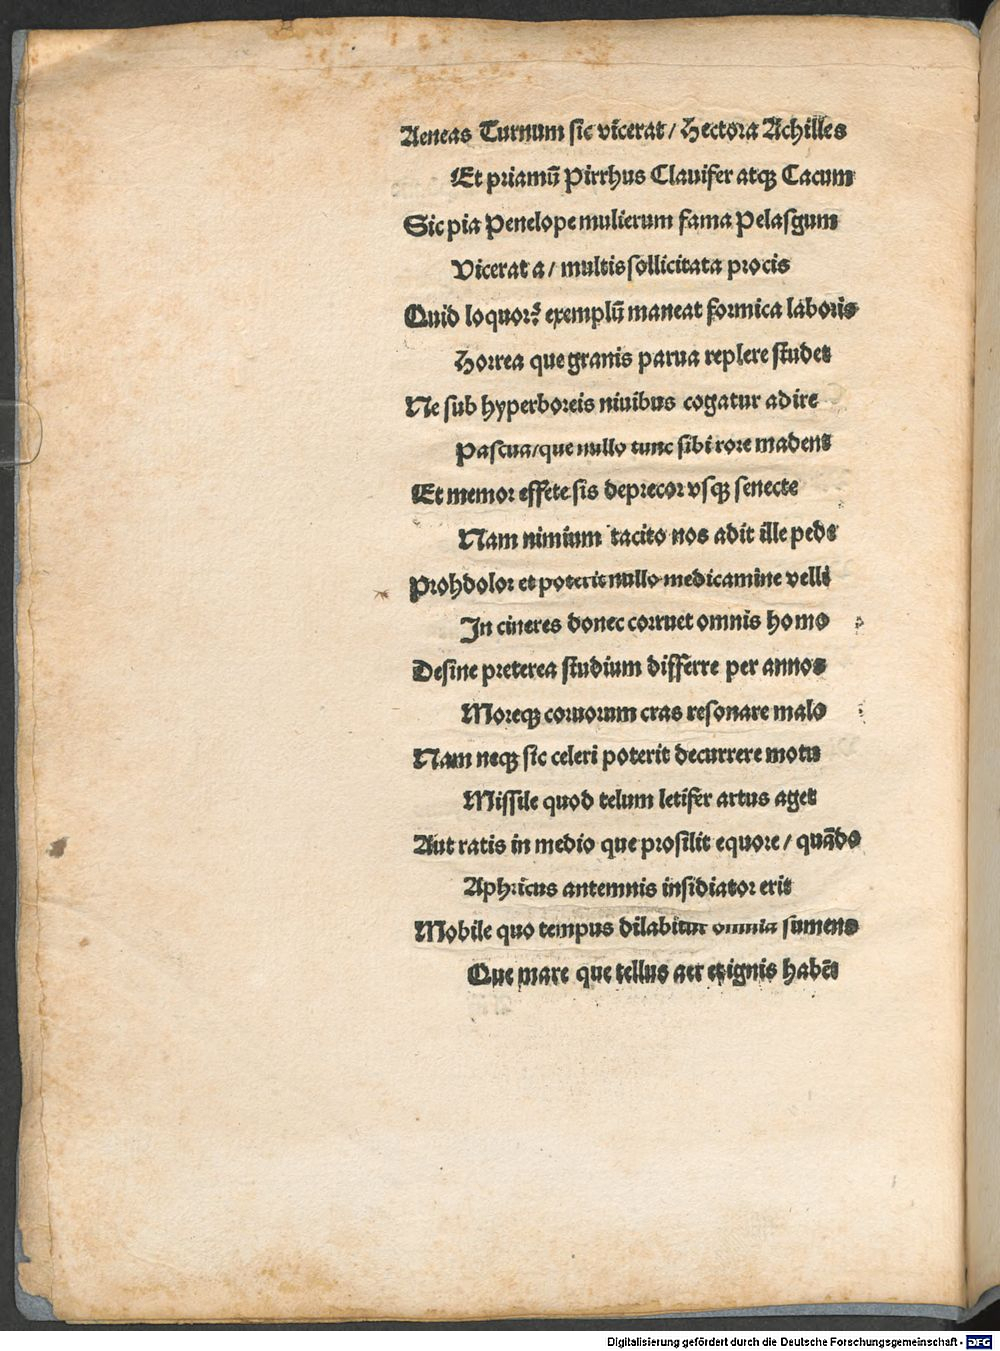 Aeneas Turnum sic vicerat / Hectora Achilles
Et priamū Pirrhus Clauifer atqꝫ Cacum
Sic pia Penelope mulierum fama Pelasgum
Vicerat a / multis sollicitata procis
Quid loquor? exemplū maneat formica laboris
Horrea que granis parua replere studet
Ne sub hyperboreis niuibus cogatur adire
Pascua / que nullo tunc sibi rore madent
Et memor effete sis deprecor vsqꝫ senecte
Nam nimium tacito nos adit ille pede
Prohdolor et poterit nullo medicamine velli
In cineres donec corruet omnis homo
Desine preterea studium differre per annos
Moreqꝫ coruorum cras resonare malo
Nam neqꝫ sic celeri poterit decurrere motu
Missile quod telum letifer artus aget
Aut ratis in medio que prosilit equore / quādo
Aphricus antemnis insidiator erit
Mobile quo tempus dilabitur omnia sumens
Que mare que tellus aer et ignis habēt
Digitalisierung gefördert durch die Deutsche Forschungsgemeinschaft - DFG